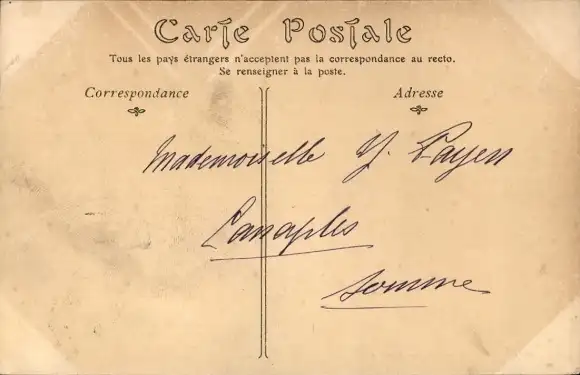 Carte Postale
Tous les pays étrangers n'acceptent pas la correspondance au recto.
Se renseigner à la poste.
Correspondance
Adresse
Mademoiselle Y. Payen
Canaples
Somme